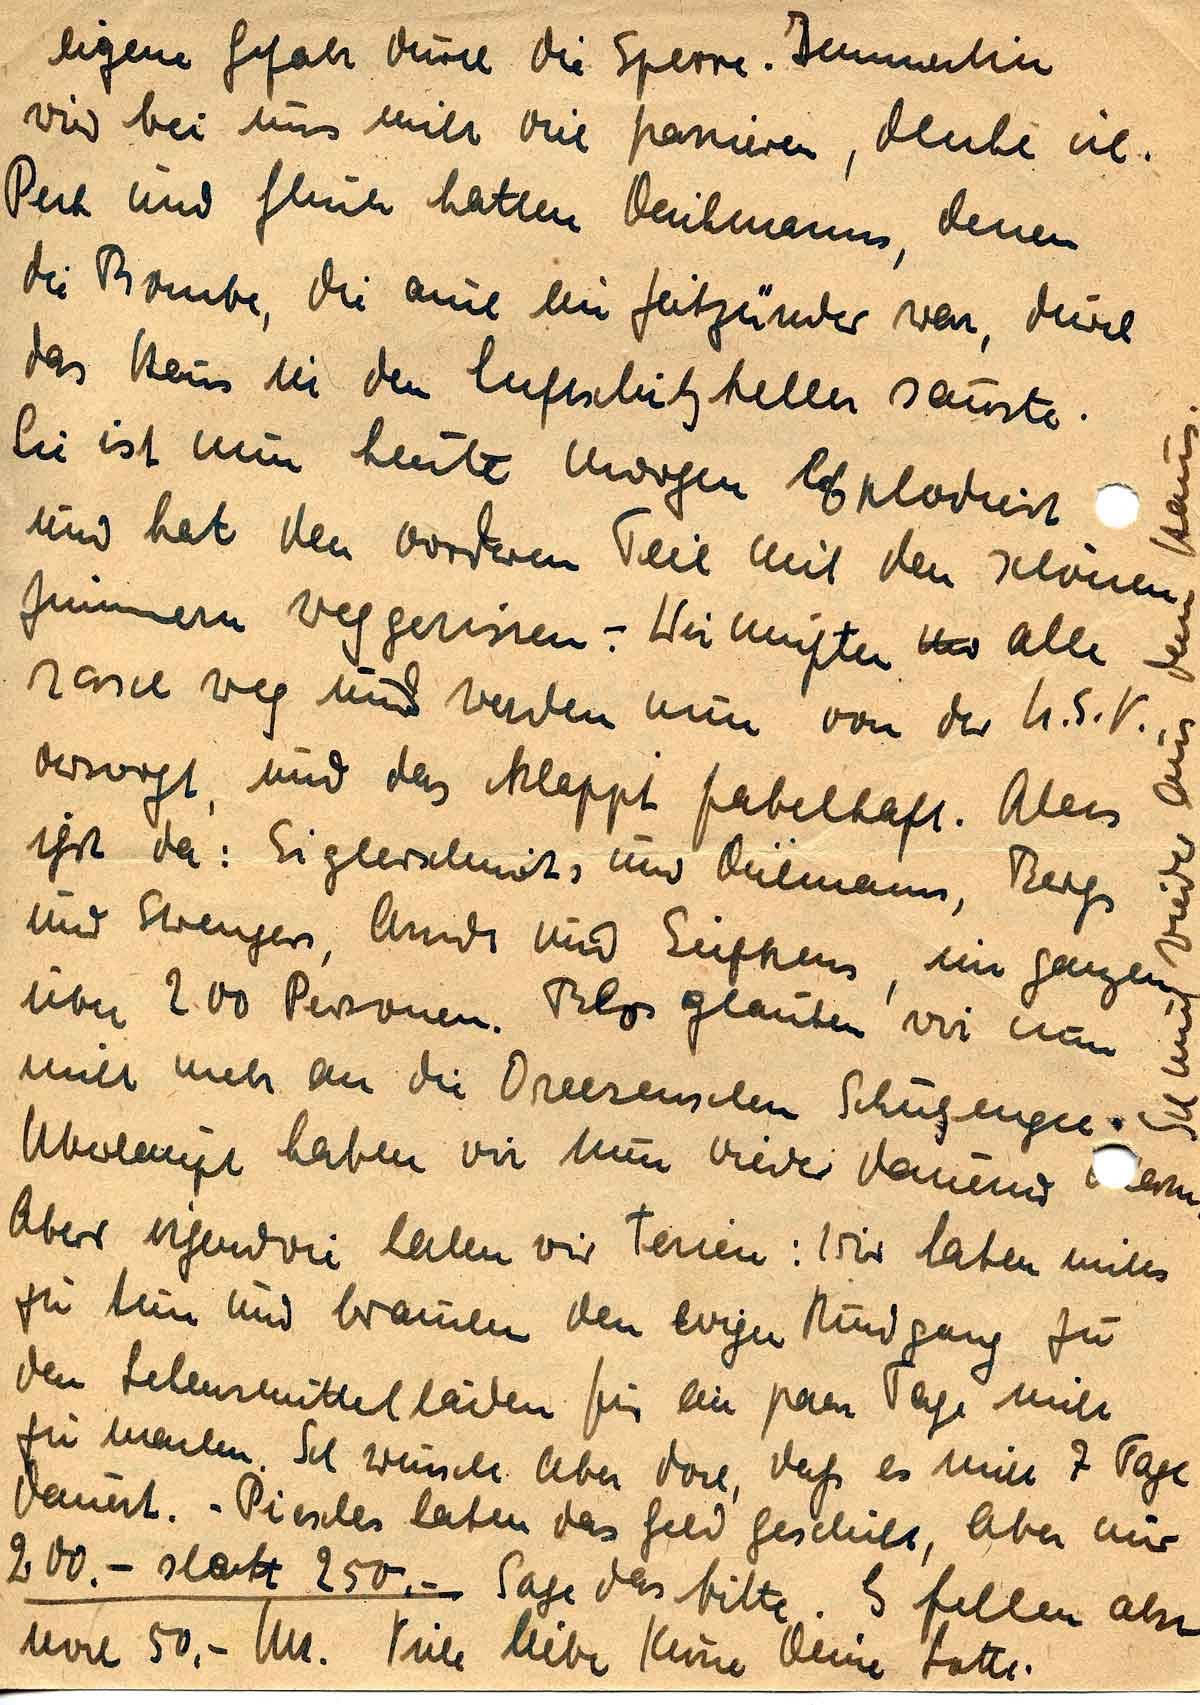 eigene Gefahr durch die Sperre. Immerhin
wird bei uns nicht viel passieren, denke ich.
Pech und Glück hatten Deichmanns, denen
die Bombe, die auch ein Zeitzünder war, durch
das Haus in den Luftschutzkeller sauste.
Sie ist nun heute morgen explodiert
und hat den vorderen Teil mit den schönen
Zimmern weggerissen. - Wir mußten alle
rasch weg und werden nun von der N.S.V.
versorgt, und das klappt fabelhaft. Alles
ißt da: Siglerschmidts und Dülmanns, Bergs
und Swengers, Arndts und, im ganzen
über 200 Personen. Blos glauben wir nun
nicht mehr an die Dreesenschen Schutzengel.
Überhaupt haben wir nun wieder dauernd Alarm.
Aber irgendwie haben wir Ferien: Wir haben nichts
zu tun und brauchen den ewigen Rundgang zu
den Lebensmittelläden für ein paar Tage nicht
zu machen. Ich wünsche aber doch, daß es nicht 7 Tage
dauert. - Piesches haben das Geld geschickt, aber nur
200.- statt 250.- Sage das bitte. Es fehlen also
noch 50,- Mk. Viele liebe Küsse Deine Lotte.
Ich muß wieder aus dem Haus.